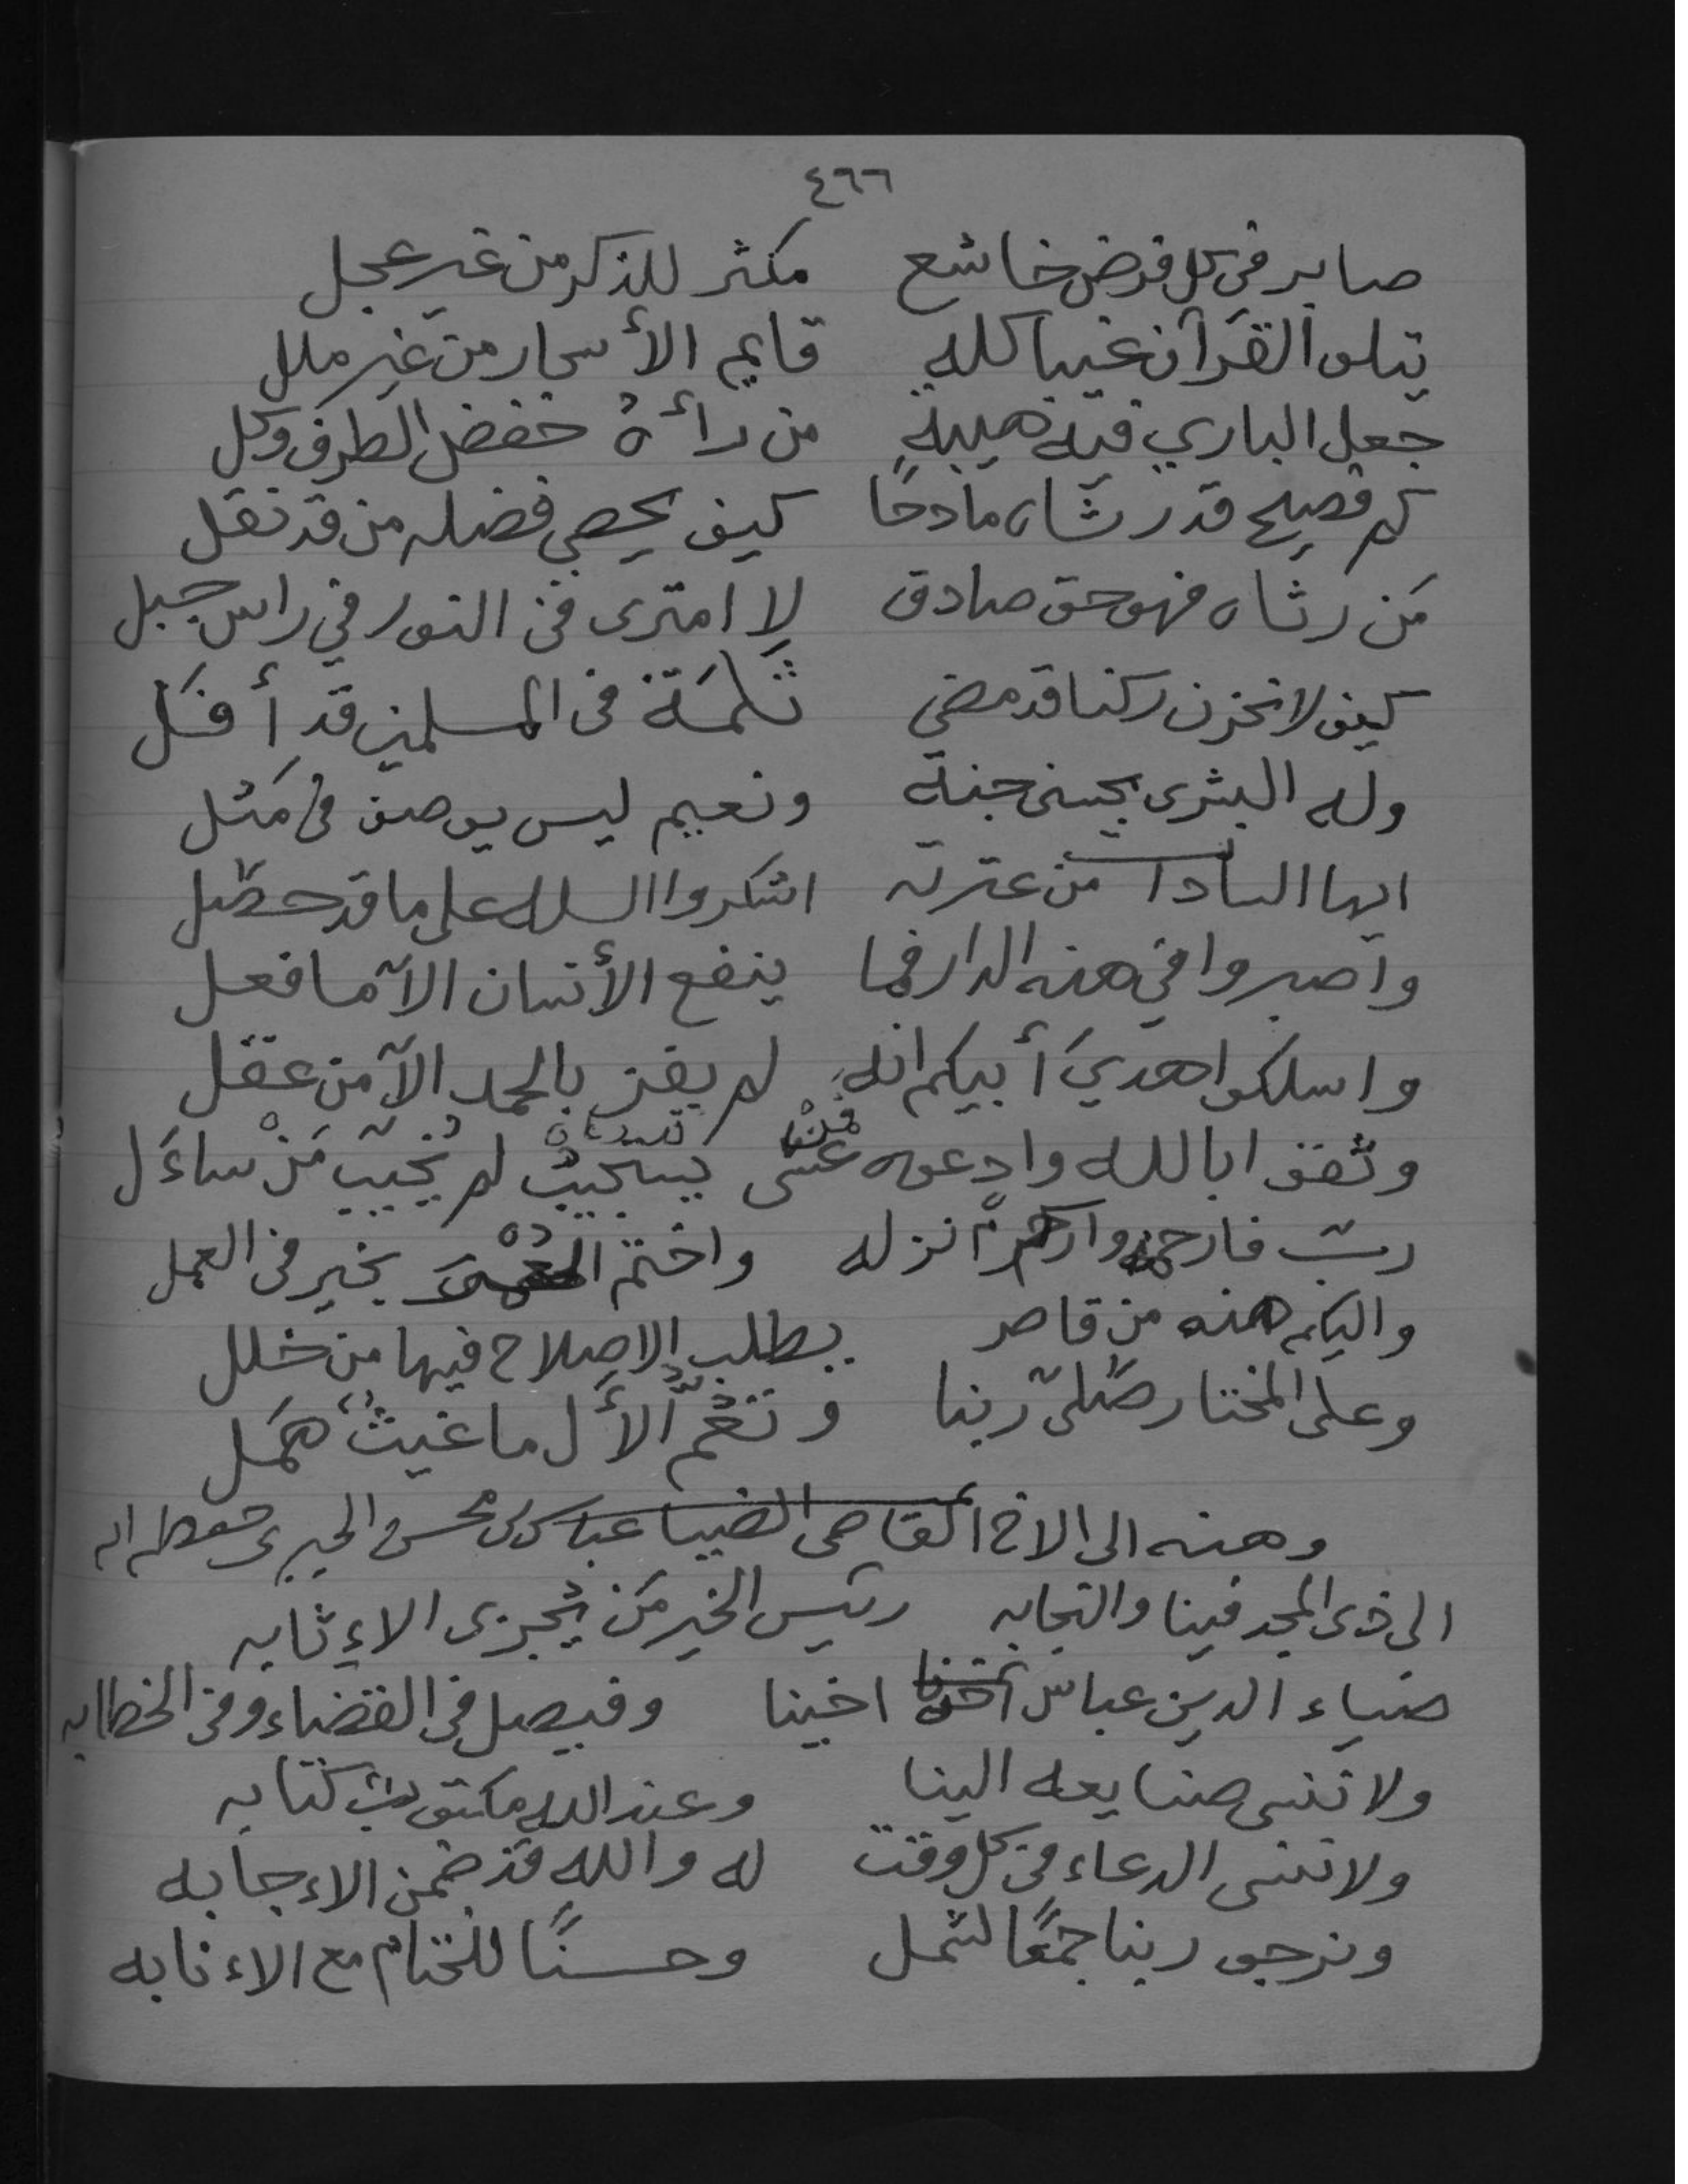 ٤٦٦
صابر في كل فرض خاشع مكثر للذكر من غير عجل
يتلو القرآن غيبا كله قايم الأسحار من غير ملل
جعل الباري فيه هيبة من رأه خفض الطرف وكل
كم فصيح قد رثاه مادحًا كيف يحصي فضله من قد نقل
مَن رثاه فهو حق صادق لا امترى في النور في راس جبل
كيف لا نحزن ركنا قد مضى ثلمَة في المسلمين قد أفَل
وله البشرى بحسنى جنة ونعيم ليس يوصف في مَثل
ايها السادات من عترته اشكروا الله على ما قد حصل
واصبروا في هذه الدار فما ينفع الأنسان الآ ما فعل
واسلكوا هديَ أبيكم انه لم يفز بالحمد الآ من عقل
وثقوا بالله وادعوه فمن لم يُخيّب مَنْ ساءَل
ربّ فارحمه واكرم نزله واختم بخير في العمل
واليكم هذه من قاصر يطلب الإصلاح فيها من خلل
وعلى المختار صَلىّ ربنا وتعُمّ الأل ما غيثٌ هَمَل
وهذه الى الاخ القاضى الضيا عباس بن محسن
الى ذى المجد فينا والنجابه رئيس الخير مَن يُجزى الاءثابه
ضياء الدين عباس اخينا وفيصل في القضاء وفي الخطابه
ولا تنسى صنايعه الينا وعند الله مكتوب كتابه
ولا ننسى الدعاء في كل وقت له والله قد ضمن الاءجابه
ونرجو ربنا جمعًا لشمل وحسنًا للختام مع الاءنابه